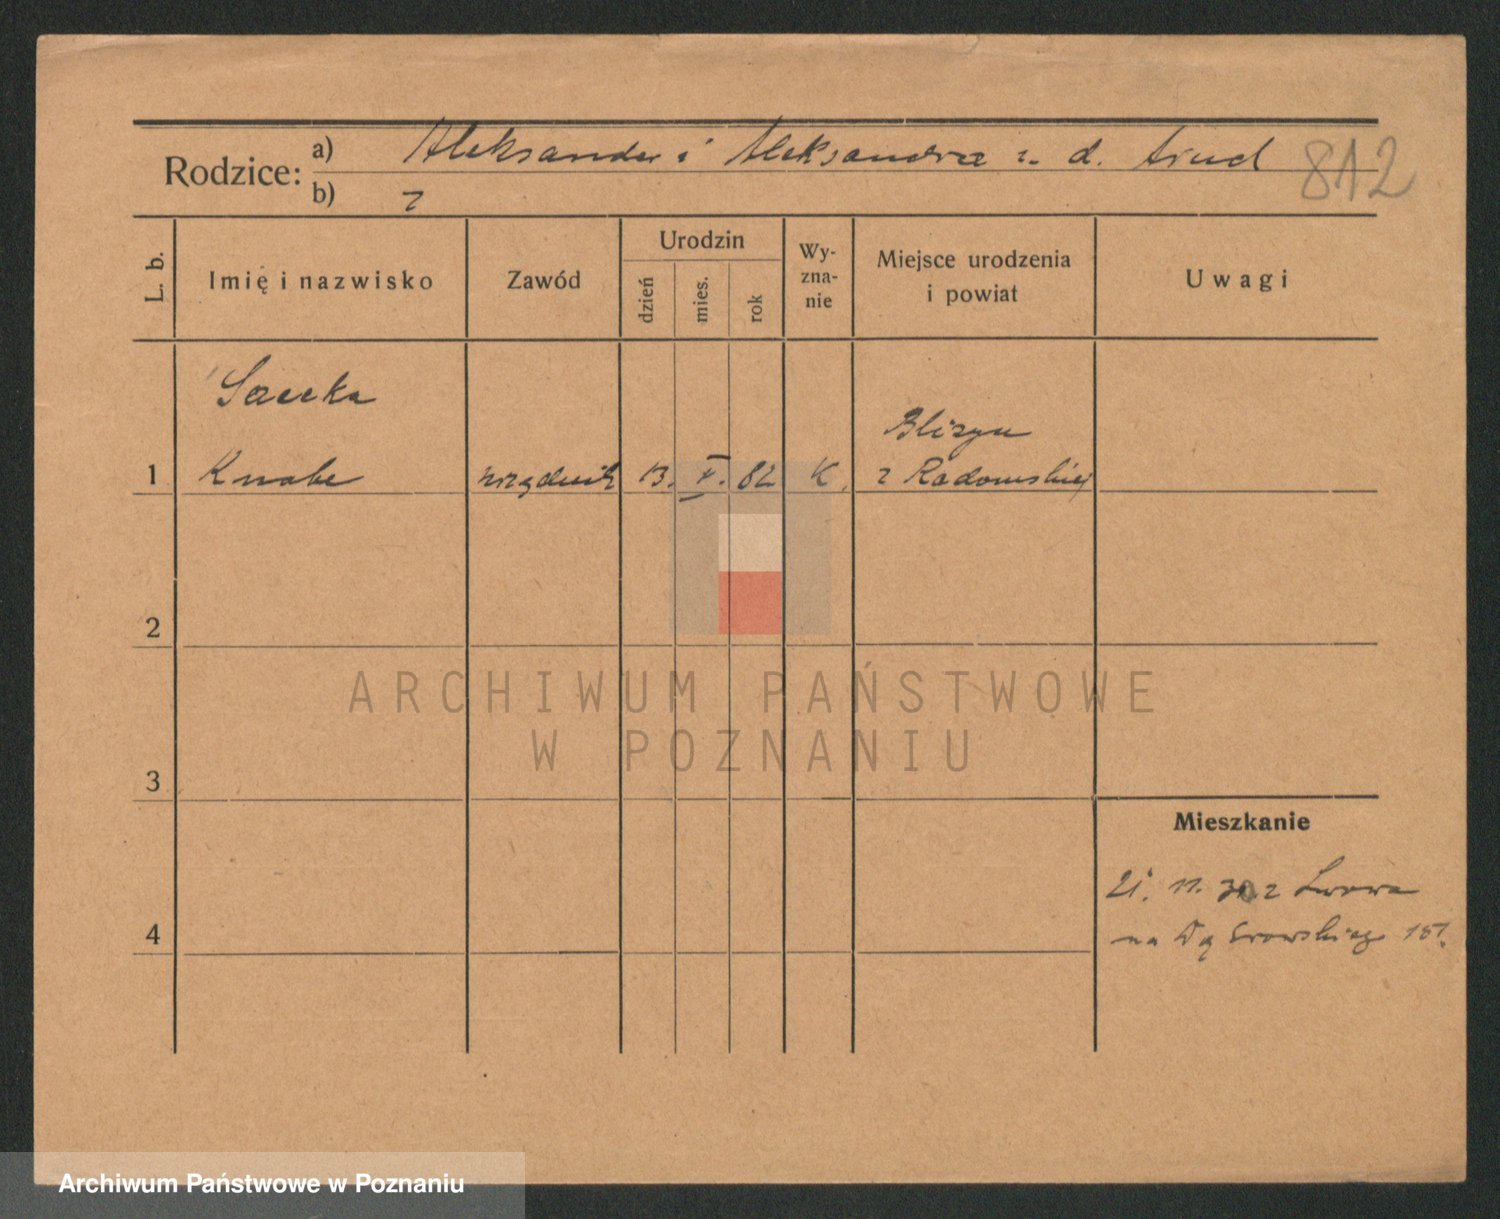 Rodzice: a) Aleksander i Aleksandra z. d. Arnd 812
b)
L. b. Imię i nazwisko Zawód Urodzin dzień mies. rok Wy-zna-nie Miejsce urodzenia i powiat Uwagi
Knabe urzędnik 13. V. 82 K.
Bliżyn
z Radomskiej
1
2
3
4
ARCHIWUM PAŃSTWOWE
W POZNANIU
Mieszkanie
21. 11. z Lwowa
na Dąbrowskiego
Archiwum Państwowe w Poznaniu